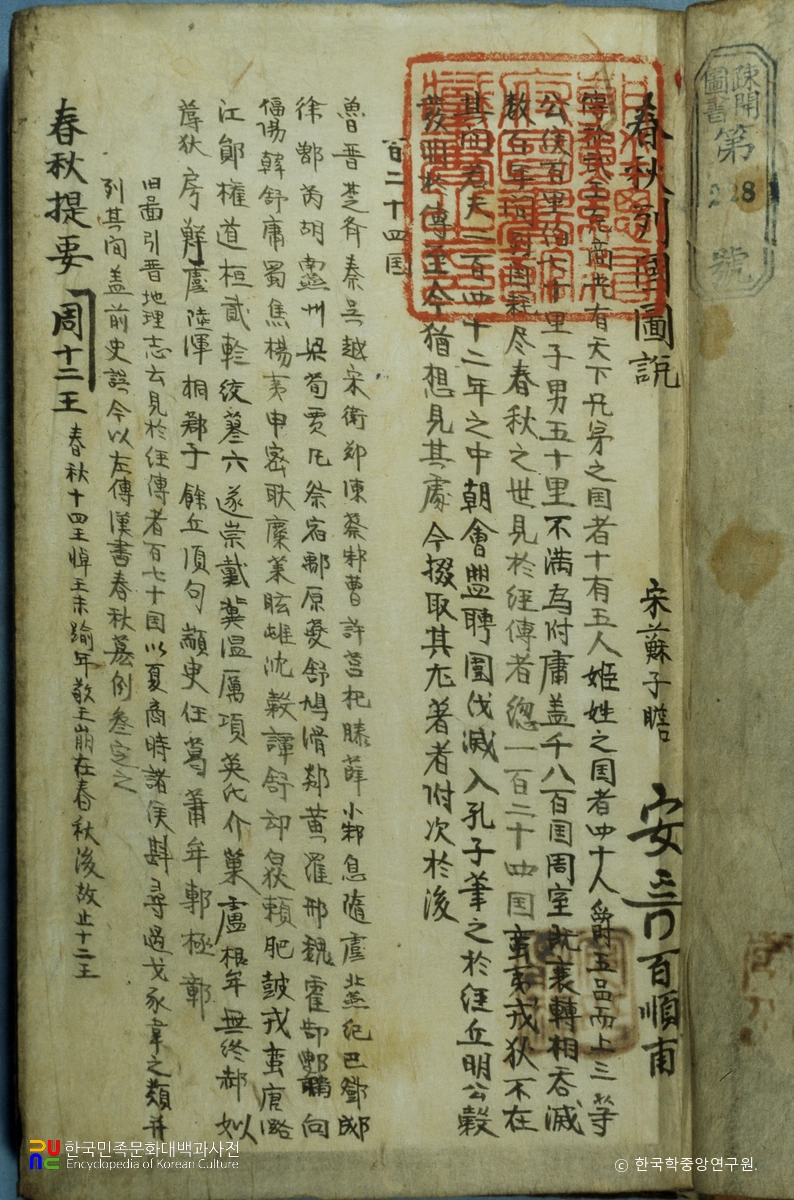 疎開圖書
第
228
號
春秋列國圖說 宋蘇子瞻 安 百順甫
傳稱武王克商光有天下兄弟之国者十有五人姬姓之国者四十人爵五品而上三等
公侯百里伯七十里子男五十里不滿為附庸盖千八百国周室既衰轉相吞滅
數百年列国耗尽春秋之世見於經傳者總一百二十四国蛮夷戎狄不在
其間看夫二百四十二年之中朝會盟聘圍伐滅入孔子筆之於經丘明公穀
發明於傳至今猶想見其處今掇取其尤著者附次於後
百二十四国
魯晋楚齐秦吳越宋衛郑陳蔡邾曹許莒杞滕薛小邾息隨虞北燕纪巴鄧郕
徐鄫芮胡 州梁荀賈凡祭宿鄅原夔舒鳩滑郯黄羅邢魏霍郜 向
偪陽韓舒庸蜀焦楊夷申密耿麋萊眩 沈穀譚舒却 頼肥鼓戎蛮唐路
江鄖權道桓貳軫绞蓼六遂崇戴冀温厲項英氏介巢盧根牟無終 如
蓐狄房鮮虞陸渾桐鄀于餘丘須句顓臾任葛萧牟鄣極鄣
旧啚引晋地理志云見於经傳者百七十国以夏商時諸侯斟尋過戈豕韋之類并
列其间盖前史誤今以左傳漢書春秋纂例叅定之
春秋提要 周十二王 春秋十四王悼王未踰年敬王崩在春秋後故止十二王
한국민족문화대백과사전
Encyclopedia of Korean Culture
© 한국학중앙연구원.